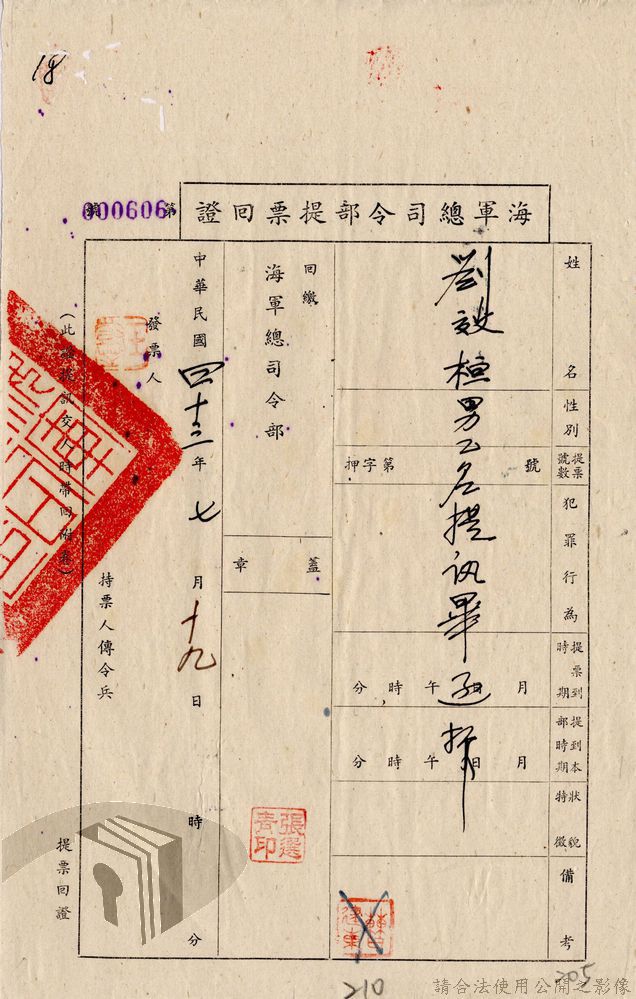 18
海軍總司令部提票回證
第000606號
姓名
性別
提票號數
犯罪行為
提票到時期
提到本部時期
狀貌特徵
備考
押字第 號
月 日 午 時 分
月 日 午 時 分
男乙名提訊畢
回繳
海軍總司令部
蓋章
張選青印
中華民國四十三年七月十九日 時 分
發票人
持票人傳令兵
(此 提訊交人時帶回附卷)
提票回證
210
205
請合法使用公開之影像